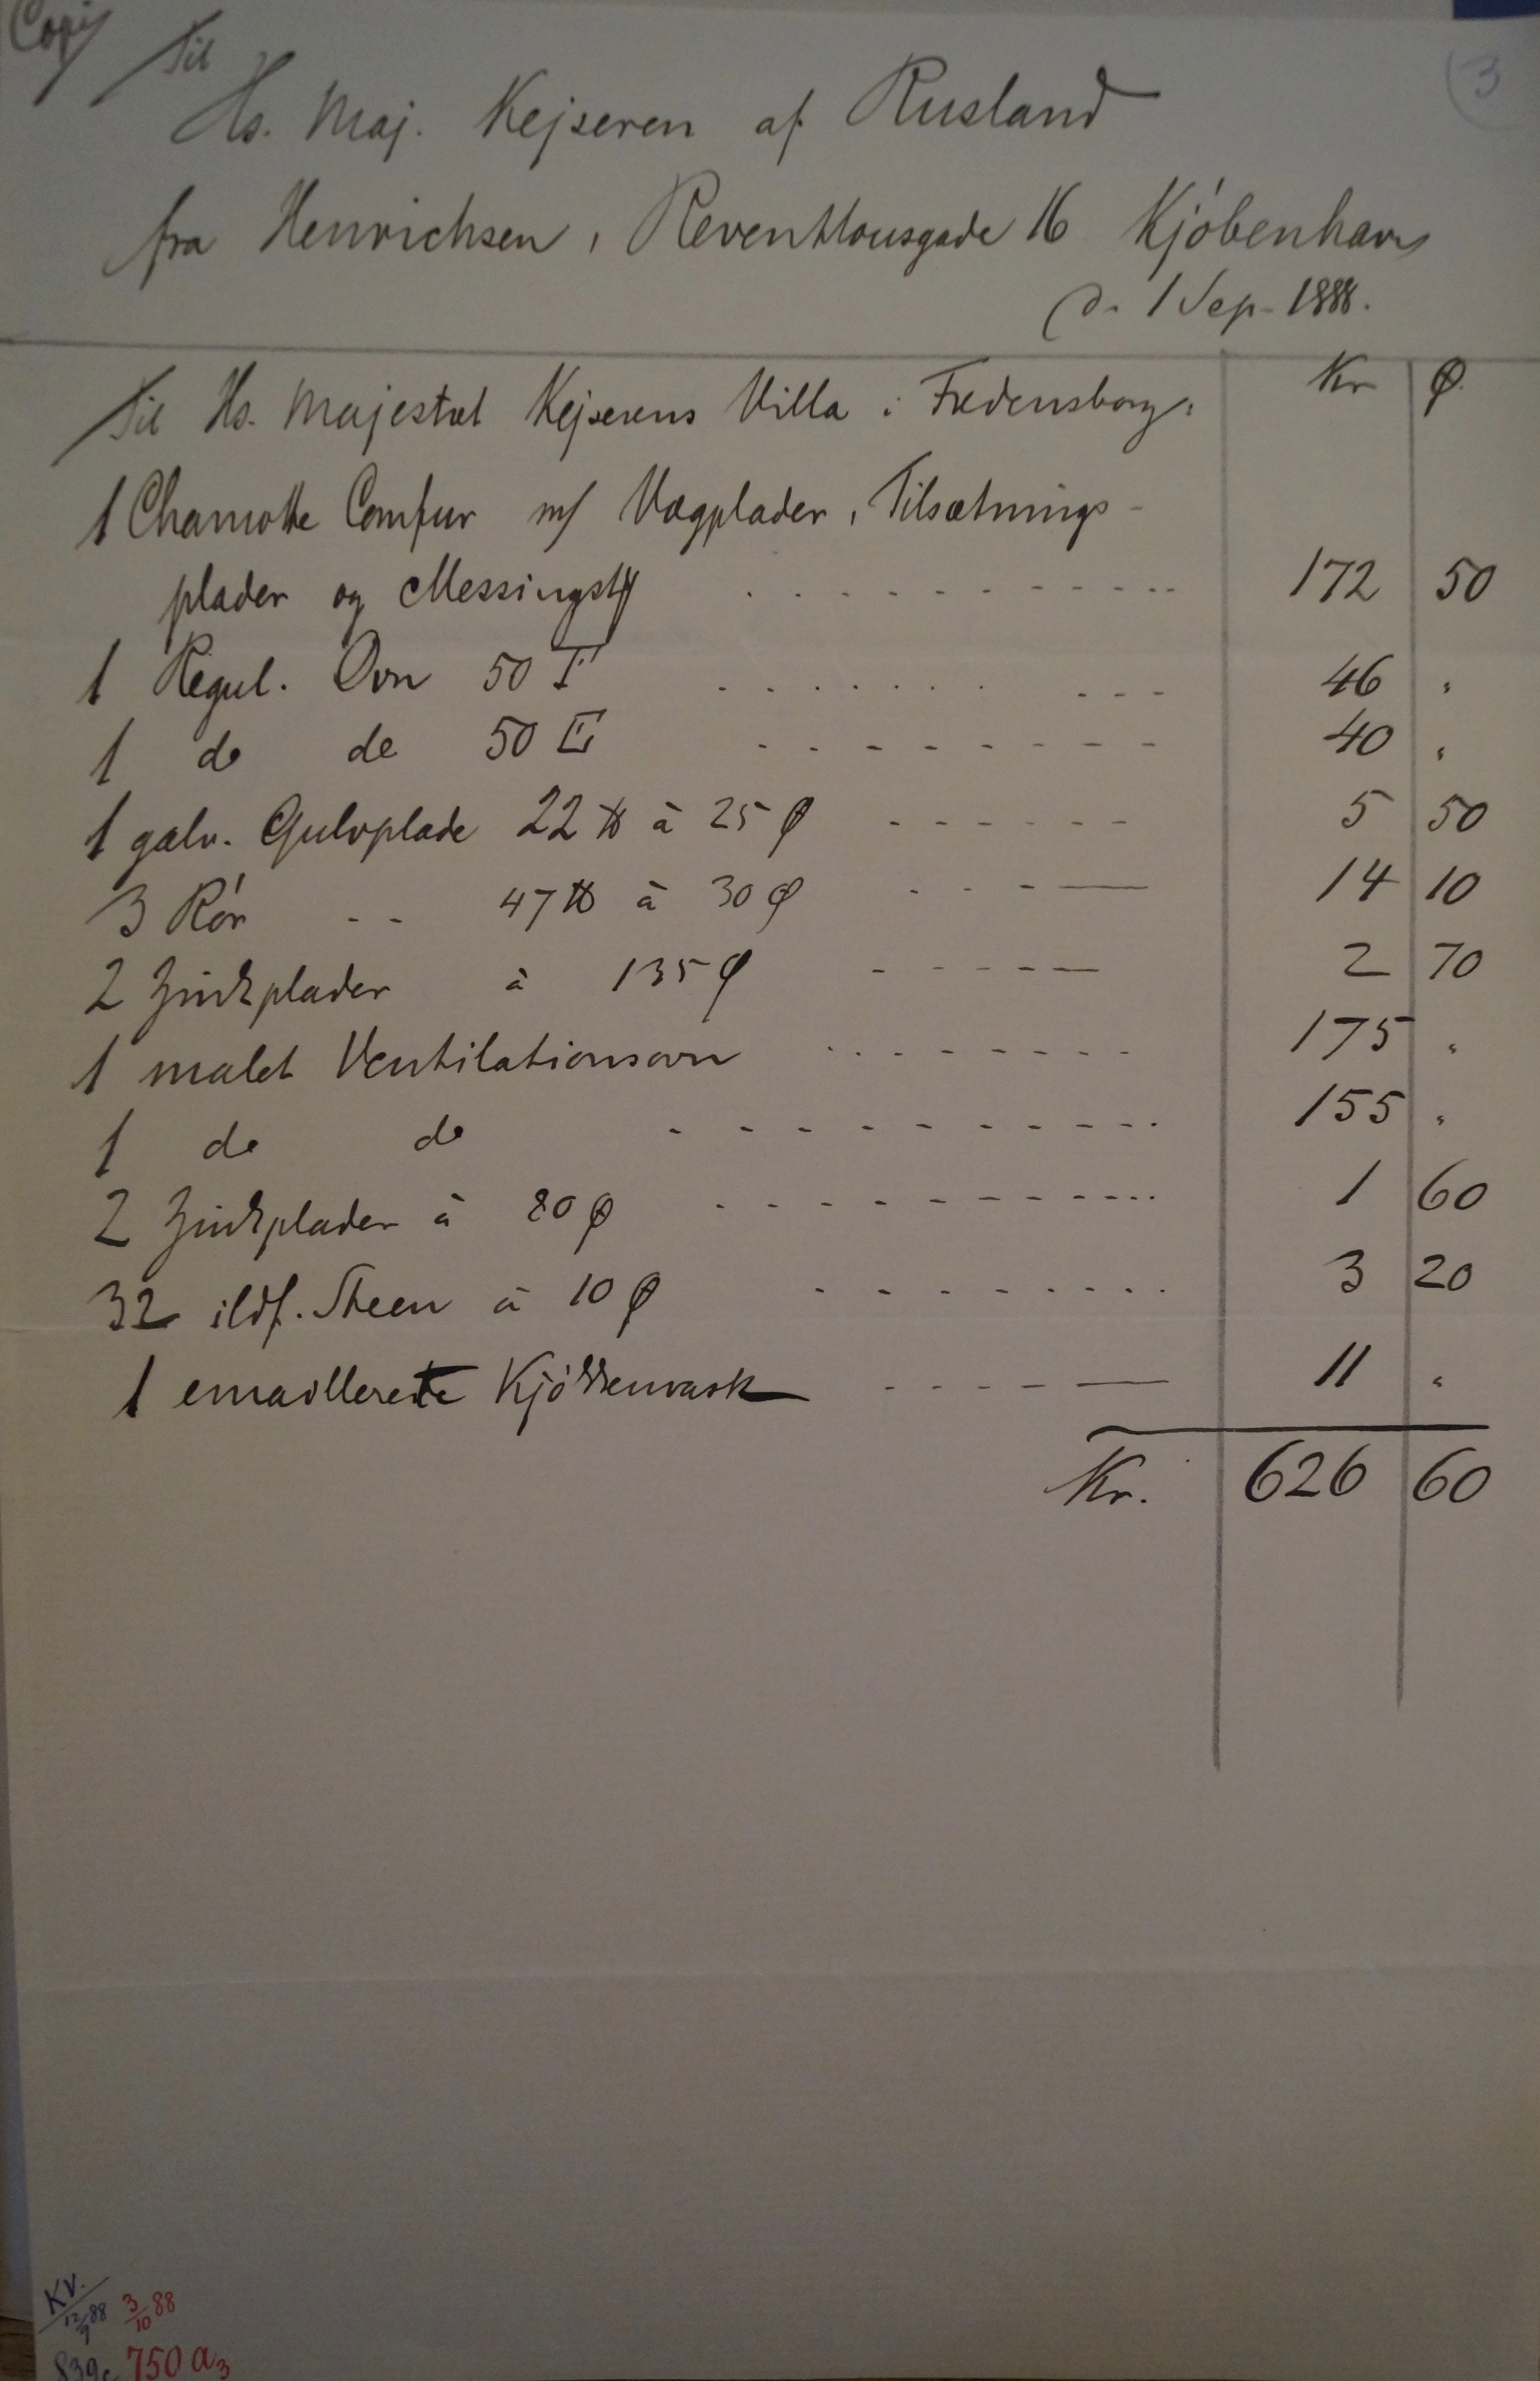 Copi
Til
Hs. Maj. Kejseren af Rusland
fra Henrichsen, Reventlousgade 16 Kjóbenhavn
d. 1 Sep. 1888.
Til Hs. Majestæt Kejserens Villa i Fredensborg: Kr Ø.
1 Chamotte Comfur m/ Vægplader, Tilsætnings-
plader og Messingstg . . . . . . . . . . . 172 50
1 Regul. Ovn 50 I . . . . . . . . . . 46 "
1 do do 50 II - - - - - - - - 40 "
1 galv. Gulvplade 22 ℔ à 25 Ø - - - - - 5 50
3 Rór - - 47 ℔ à 30 Ø - - - — 14 10
2 Zinkplader à 135 Ø - - - - — 2 70
1 malet Ventilationsovn - - - - - - - - 175 "
1 do do - - - - - - - - - - 155 "
2 Zinkplader à 80 Ø - - - - - - - - - 1 60
32 ildf. Steen à 10 Ø - - - - - - - - 3 20
1 emaillerete Kjókkenvask - - - - — 11 "
Kr. 626 60
3
KV.
12/9 88 3/10 88
839c 750 a3